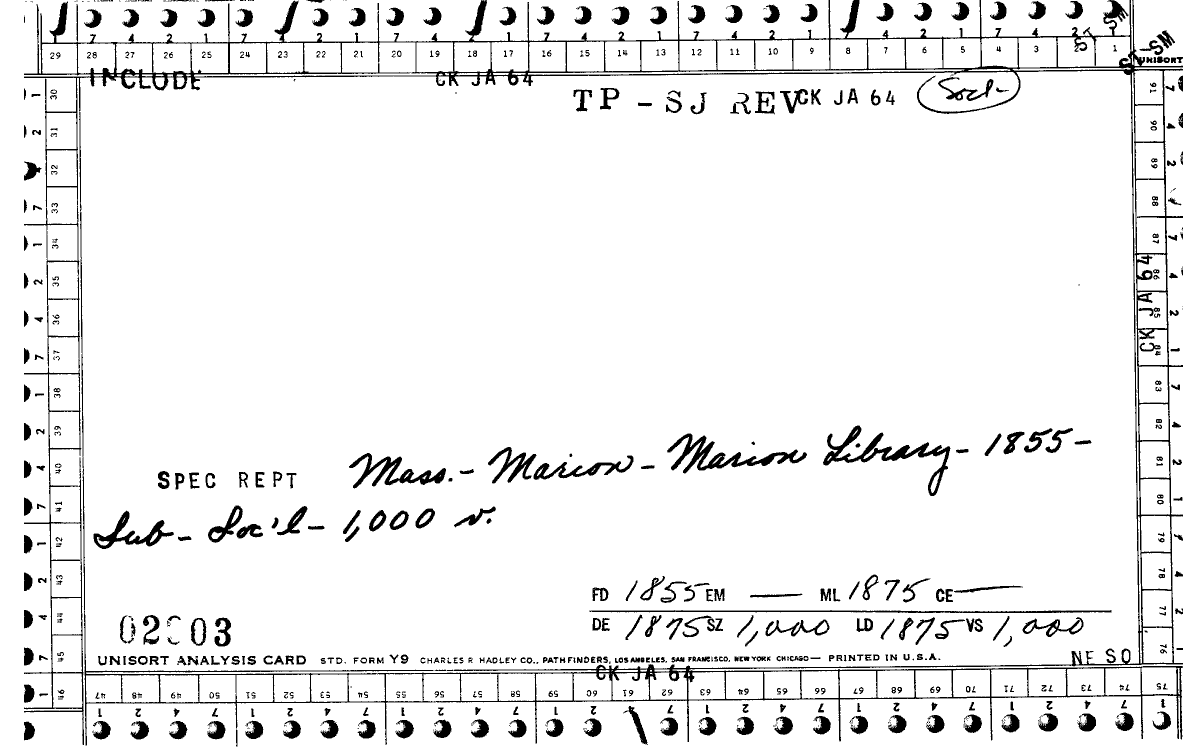 7 4 2 1 7 4 2 1 7 4 2 1 7 4 2 1 7 4 2 1 7 4 2 1
29 28 27 26 25 24 23 22 21 20 19 18 17 16 15 14 13 12 11 10 9 8 7 6 5 4 3 1
ST SM
ST-SM
UNISORT
INCLUDE CK JA 64
TP - SJ REV CK JA 64 Socl-
1 30
2 31
32
7 33
1 34
2 35
4 36
7 37
1 38
2 39
4 40
7 41
1 42
2 43
4 44
7 45
1 46
91 90 89 88 87 86 85 84 83 82 81 80 79 78 77 76
CK JA 64
SPEC REPT Mass. - Marion - Marion Library - 1855 -
Sub - Soc'l - 1,000 v.
FD 1855 EM — ML 1875 CE —
DE 1875 SZ 1,000 LD 1875 VS 1,000
NE SO
UNISORT ANALYSIS CARD STD. FORM Y9 CHARLES R HADLEY CO., PATHFINDERS, LOS ANGELES, SAN FRANCISCO, NEW YORK CHICAGO — PRINTED IN U.S.A.
CK JA 64
47 48 49 50 51 52 53 54 55 56 57 58 59 60 61 62 63 64 65 66 67 68 69 70 71 72 73 74 75